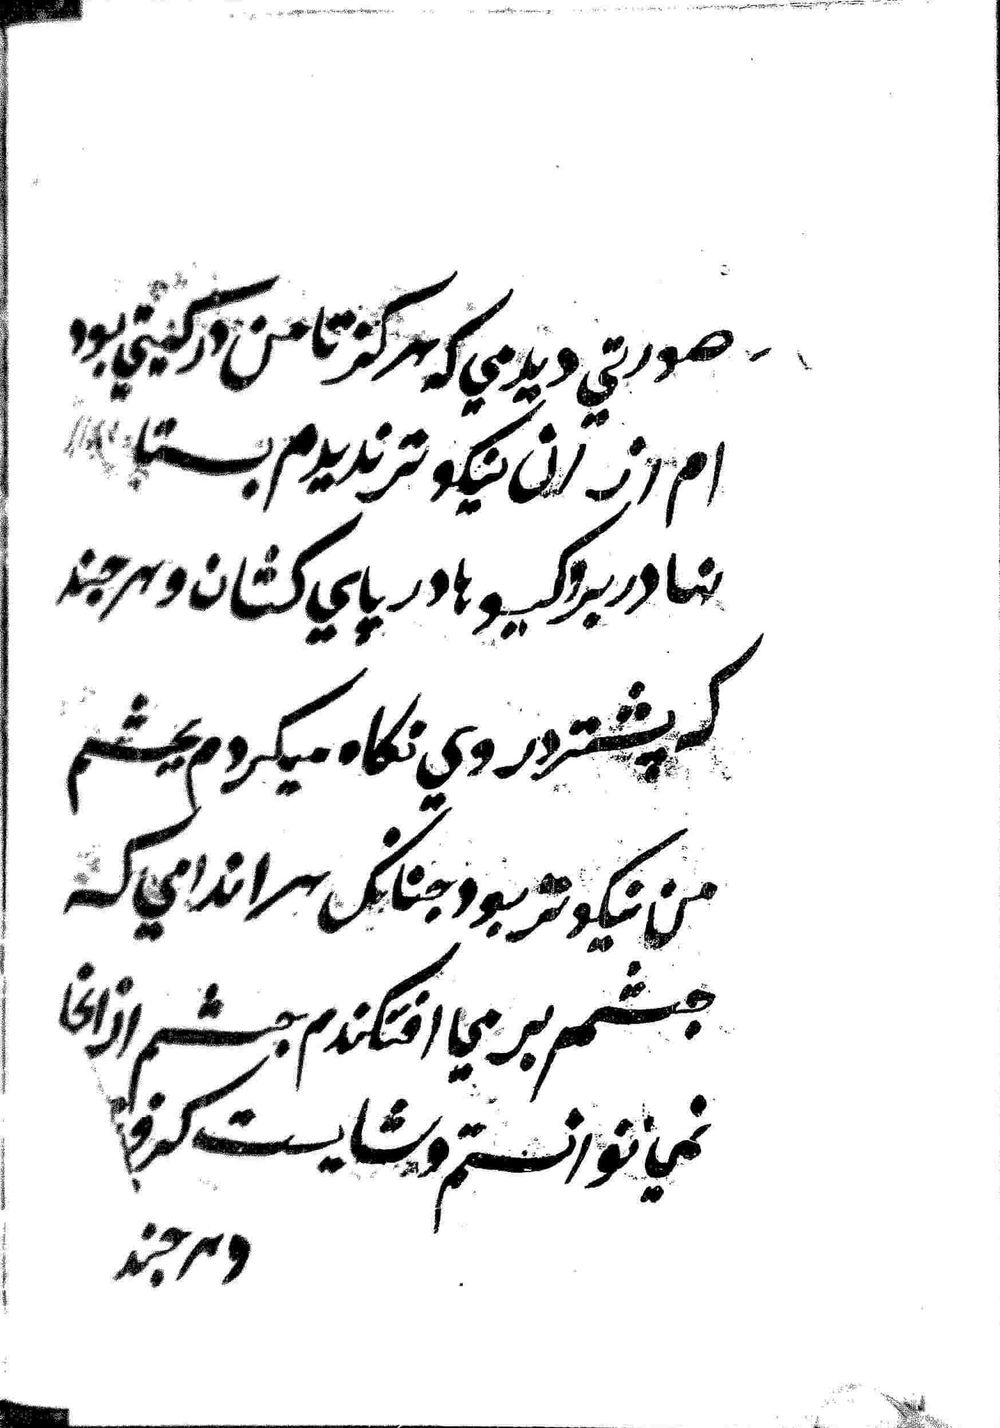 صورتي ديدمي كه هر كز تا من در كيتي بود
ام از ان نيكو تر نديدم بستا
نها در بر و كيسو ها در پاي كشان و هر جند
كه پيشتر در وي نكاه ميكردم بجشم
من نيكو تر بود جنانك هر اندامي كه
جشم بر مي افتكندم جشم از انجا
نمي توانستم و شايست كرفت
و هر جند